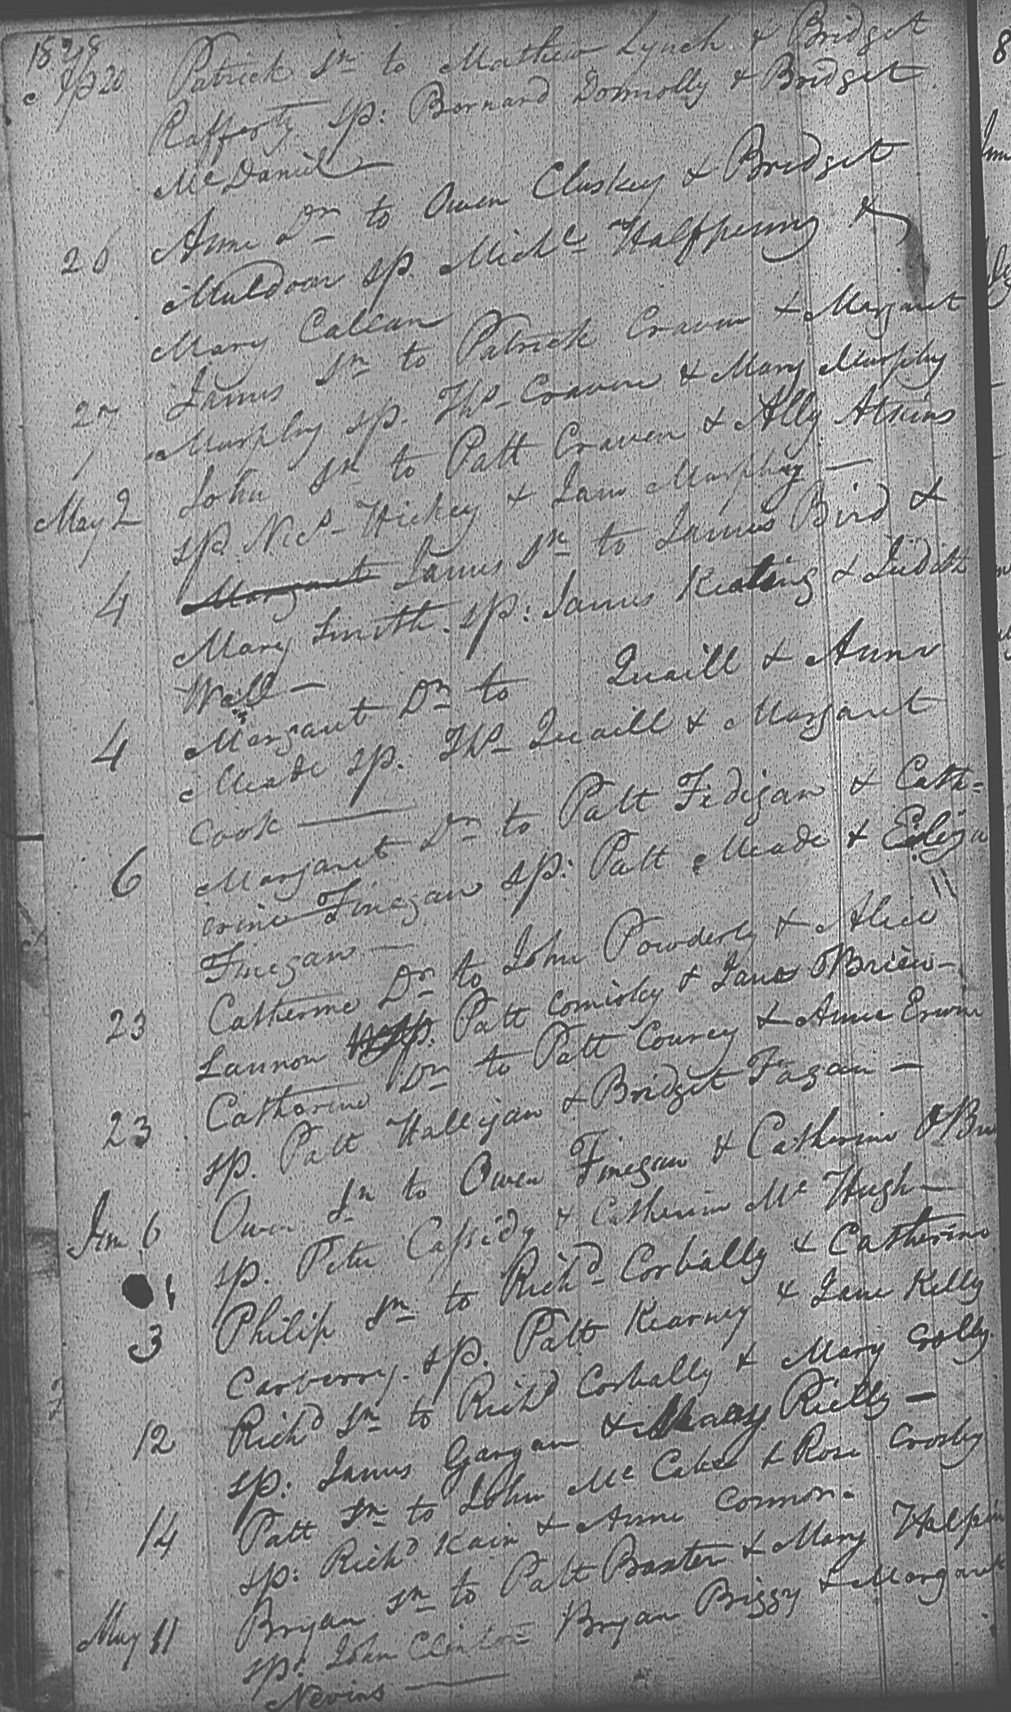 1828
Ap 20 Patrick Sn to Mathew Lynch & Bridget
Rafferty sp: Bernard Donnolly & Bridget
Mc Daniel —
26 Anne Dn to Owen Cluskey & Bridget
Muldoon sp. Michl Halfpenny &
Mary Callan
27 James Sn to Patrick Craven & Margaret
Murphy sp. Ths Craven & Mary Murphy
May 2 John Sn to Patt Craven & Ally Atkins
sp Nics Hickey & Jane Murphy —
4 Margaret James Sn to James Bird &
Mary Smith. sp: James Keating & Judith
Wall —
4 Margaret Dn to Quaill & Anne
Meade sp. Ths Quaill & Margaret
Cook —
6 Margaret Dn to Patt Fedigan & Cath=
erine Finegan sp: Patt Meade & Eliza
Finegan —
23 Catherine Dr to John Powderly & Alice
Lannon sp. Patt Comisky & Jane OBrien —
23 Catherine Dn to Patt Courcy & Anne Erwin
sp. Patt Halligan & Bridget Fagan —
Jun 6 Owen Sn to Owen Finegan & Catherine OBri
sp. Peter Cassidy & Catherine Mc Hugh —
3 Philip Sn to Richd Corbally & Catherine
Carberry. sp. Patt Kearney & Jane Kelly
12 Richd Sn to Richd Corbally & Mary Golly.
sp: James Gargan & Mary Rielly —
14 Patt Sn to John Mc Cabe & Rose Crosby
sp: Richd Kain & Anne Connor.
May 11 Bryan Sn to Patt Baxter & Mary Halpin
sp: John Clinton Bryan Briggy & Margaret
Nevins —